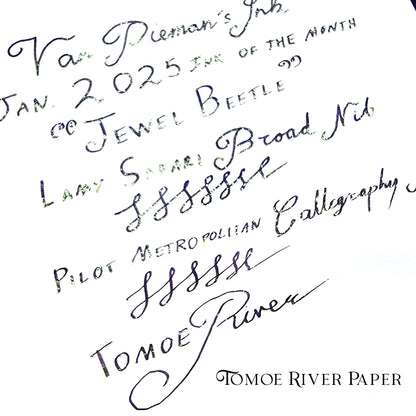 Van Dieman's Ink
Jan. 2025 Ink of the Month
"Jewel Beetle"
Lamy Safari Broad Nib
Pilot Metropolitan Calligraphy
Tomoe River
Tomoe River Paper